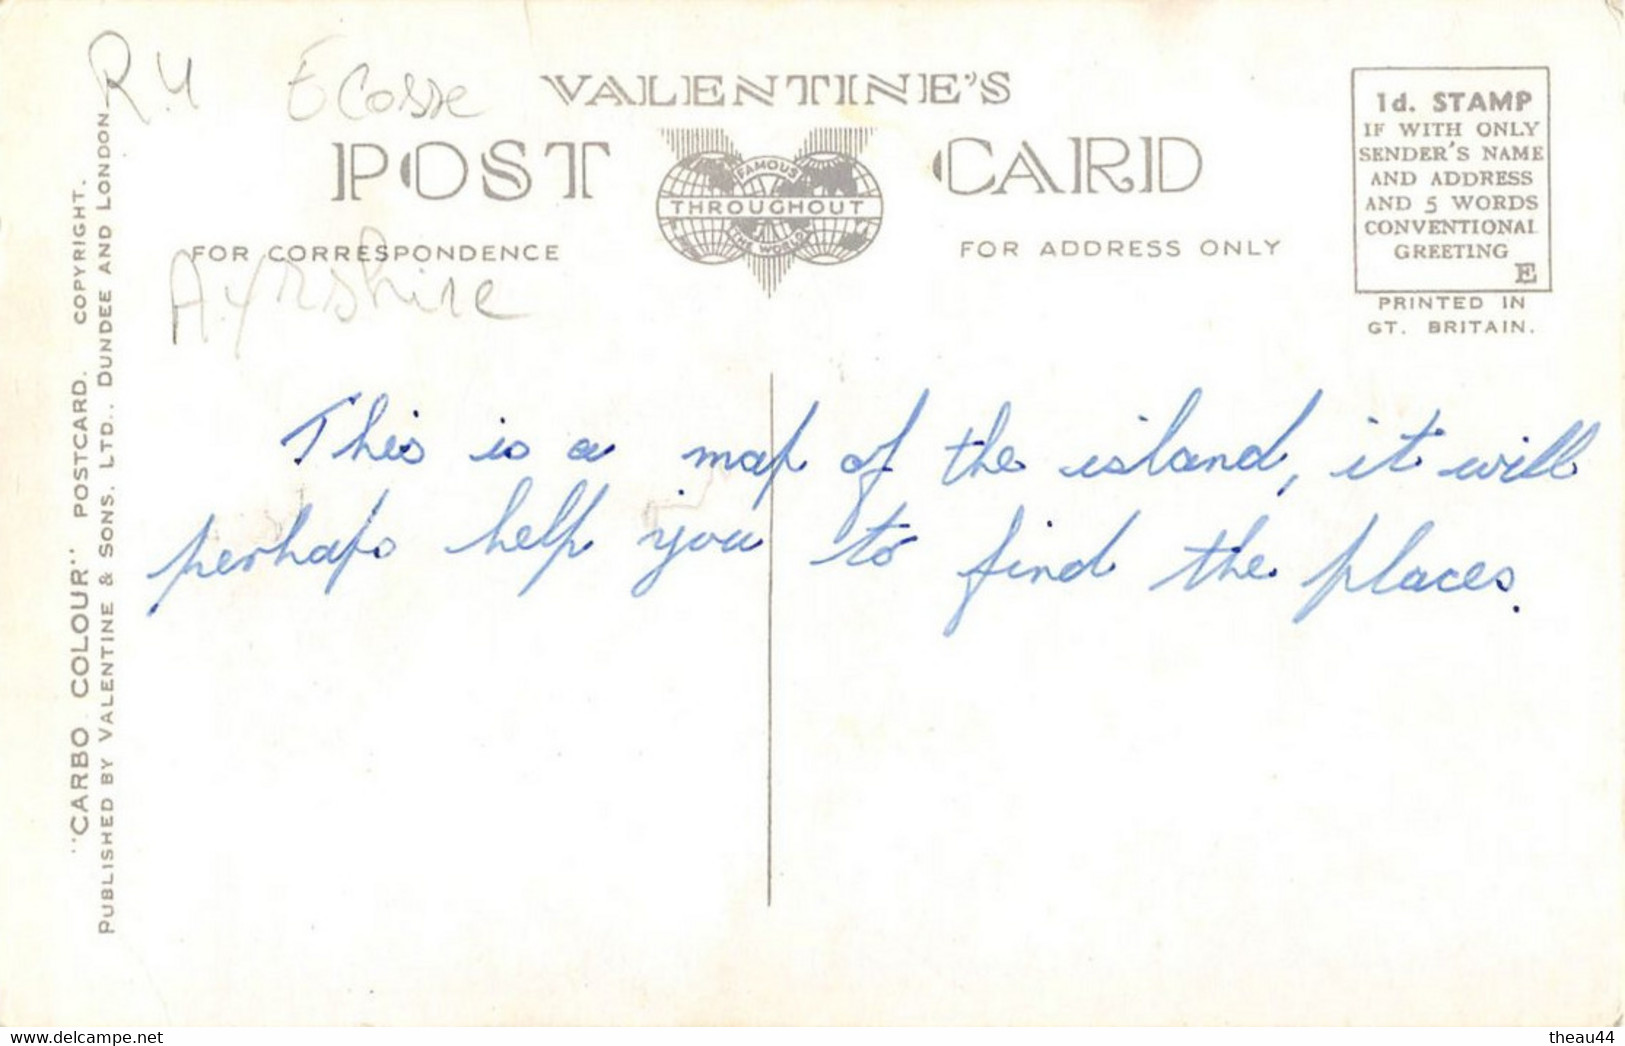 R.U Ecosse
VALENTINE'S
POST CARD
FAMOUS
THROUGHOUT
THE WORLD
FOR CORRESPONDENCE
FOR ADDRESS ONLY
Ayrshire
1d. STAMP
IF WITH ONLY
SENDER'S NAME
AND ADDRESS
AND 5 WORDS
CONVENTIONAL
GREETING
E
PRINTED IN
GT. BRITAIN.
This is a map of the island, it will
perhaps help you to find the places.
"CARBO COLOUR" POSTCARD. COPYRIGHT.
PUBLISHED BY VALENTINE & SONS, LTD., DUNDEE AND LONDON
www.delcampe.net
theau44